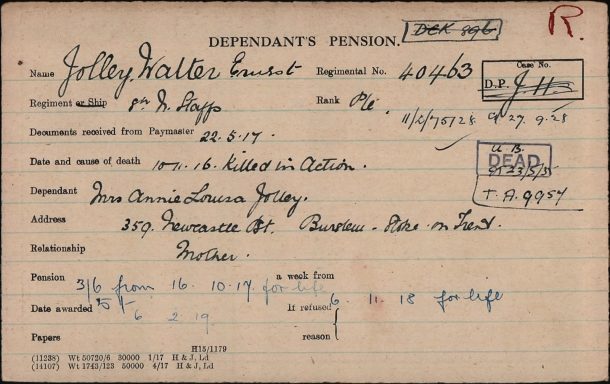 DCK 896
R.
DEPENDANT'S PENSION.
Name Jolley, Walter Ernest Regimental No. 40463
Case No.
D.P.
Regiment or Ship 8th N. Staffs Rank Pte
11/L/75128 9.27. 9.28
Documents received from Paymaster 22.5.17.
DEAD
Date and cause of death 10.11.16. Killed in Action.
Dependant Mrs Annie Louisa Jolley.
T.A. 9957
Address 359. Newcastle St. Burslem - Stoke on Trent.
Relationship Mother.
Pension 3/6 from 16.10.17. for life a week from
5/- 6.11.18 for life
Date awarded 6 2 19 If refused
Papers reason
H15/1179
(11238) Wt 50720/6 30000 1/17 H & J, Ld
(14107) Wt 1743/123 50000 4/17 H & J, Ld